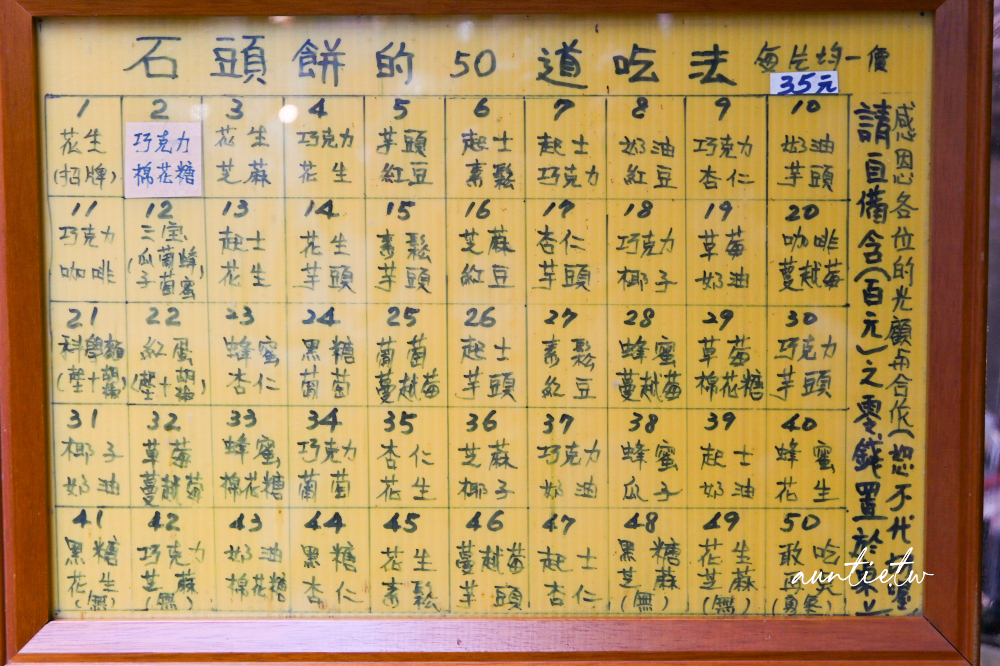 石頭餅的50道吃法 每片均一價
35元
1 花生 (招牌)
2 巧克力 棉花糖
3 花生 芝蔴
4 巧克力 花生
5 芋頭 紅豆
6 起士 素鬆
7 起士 巧克力
8 奶油 紅豆
9 巧克力 杏仁
10 奶油 芋頭
11 巧克力 咖啡
12 三宝 (瓜子 葡萄 蜂蜜)
13 起士 花生
14 花生 芋頭
15 素鬆 芋頭
16 芝蔴 紅豆
17 杏仁 芋頭
18 巧克力 椰子
19 草莓 奶油
20 咖啡 蔓越莓
21 科學麵 (塩+胡椒)
22 紅蛋 (塩+胡椒)
23 蜂蜜 杏仁
24 黑糖 葡萄
25 葡萄 蔓越莓
26 起士 芋頭
27 素鬆 紅豆
28 蜂蜜 蔓越莓
29 草莓 棉花糖
30 巧克力 芋頭
31 椰子 奶油
32 草莓 蔓越莓
33 蜂蜜 棉花糖
34 巧克力 葡萄
35 杏仁 花生
36 芝蔴 椰子
37 巧克力 奶油
38 蜂蜜 瓜子
39 起士 奶油
40 蜂蜜 花生
41 黑糖 花生 (無)
42 巧克力 芝蔴 (無)
43 奶油 棉花糖
44 黑糖 杏仁
45 花生 素鬆
46 蔓越莓 芋頭
47 起士 杏仁
48 黑糖 芝蔴 (無)
49 花生 芝蔴 (無)
50 敢吃
感恩各位的光顧再合作(恕不代
請自備含(百元)之零錢置於桌上
auntietw